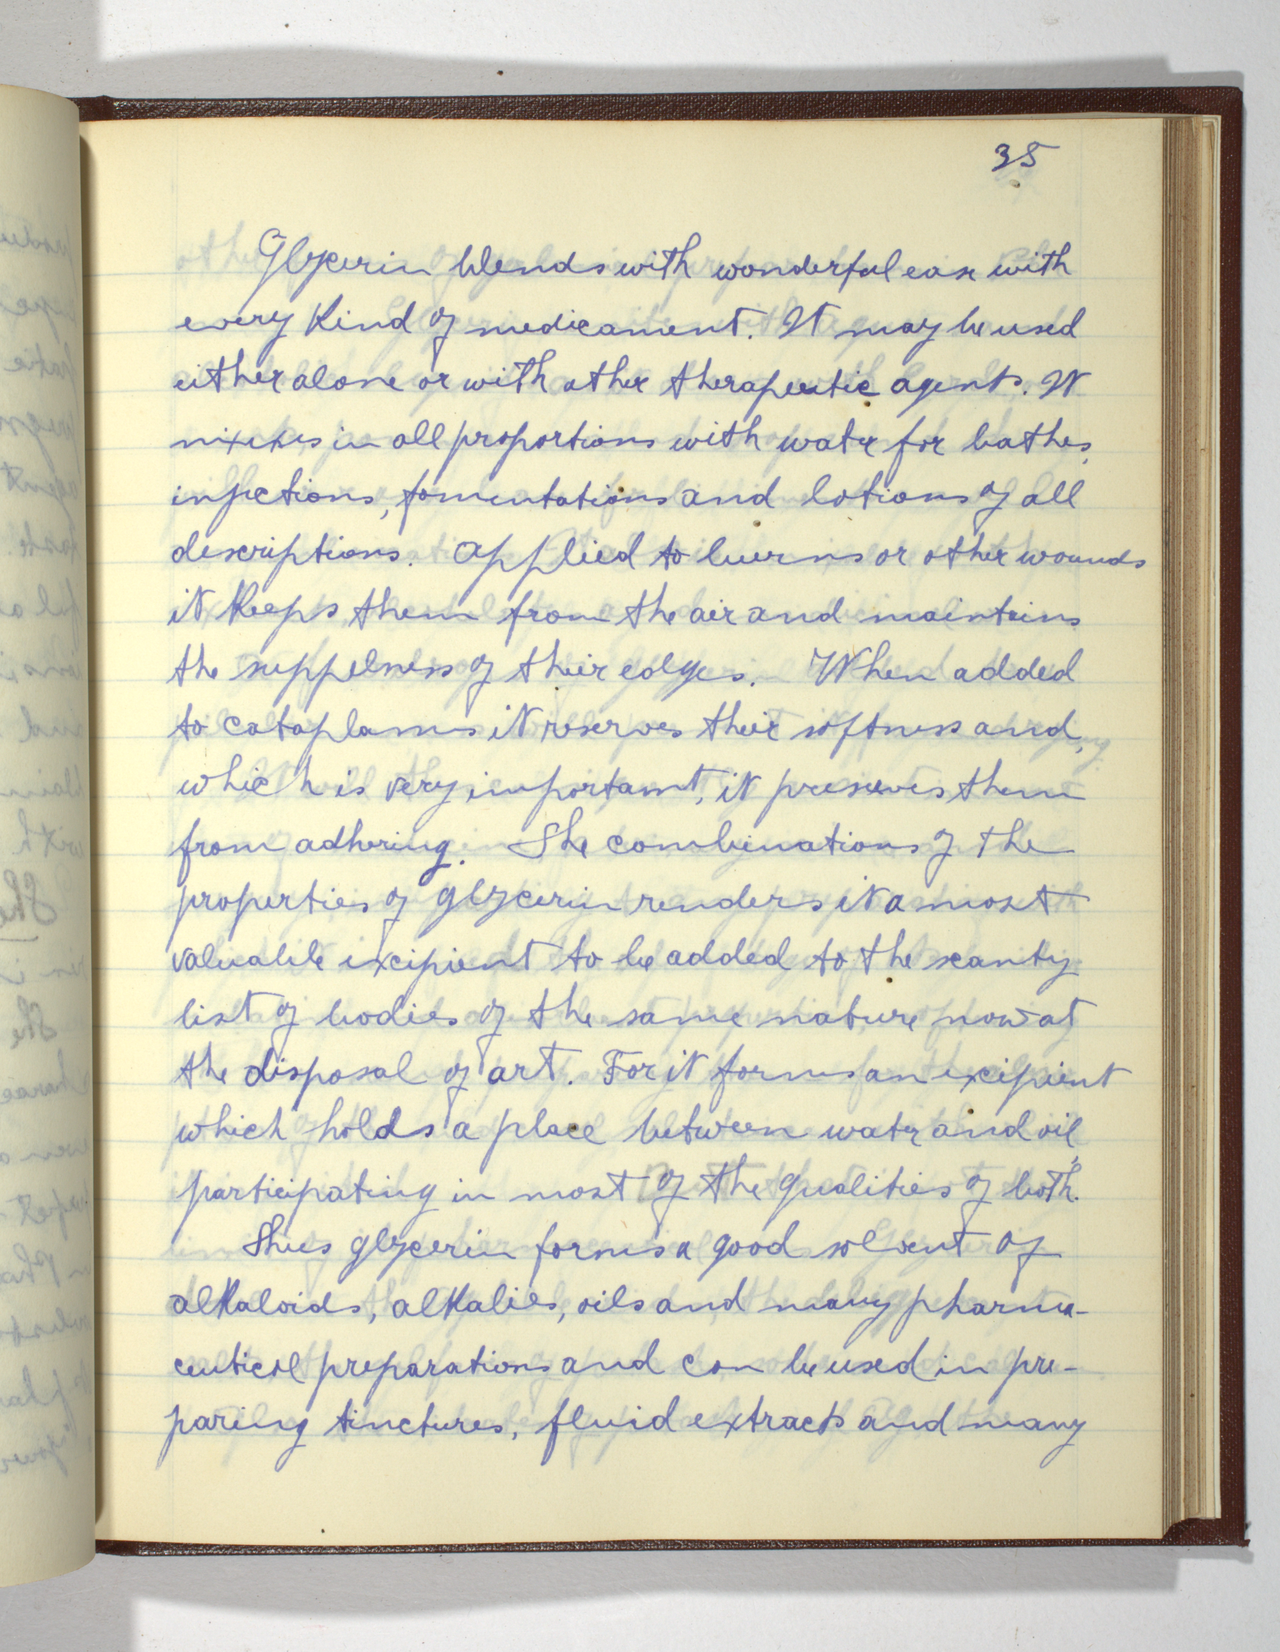 35
Glycerin blends with wonderful ease with
every kind of medicament. It may be used
either alone or with other therapeutic agents. It
mixes in all proportions with water for bathes,
injections, fomentations and lotions of all
descriptions. Applied to burns or other wounds
it keeps them from the air and maintains
the suppelness of their edges. When added
to cataplasms it reserves their softness and,
which is very important, it preserves them
from adhering. The combinations of the
properties of glycerin renders it a most
valuable excipient to be added to the scanty
list of bodies of the same nature now at
the disposal of art. For it forms an excipient
which holds a place between water and oil
participating in most of the qualities of both."
Thus glycerin forms a good solvent of
alkaloids, alkalies, oils and many pharma-
ceutical preparations and can be used in pre-
paring tinctures, fluid extracts and many